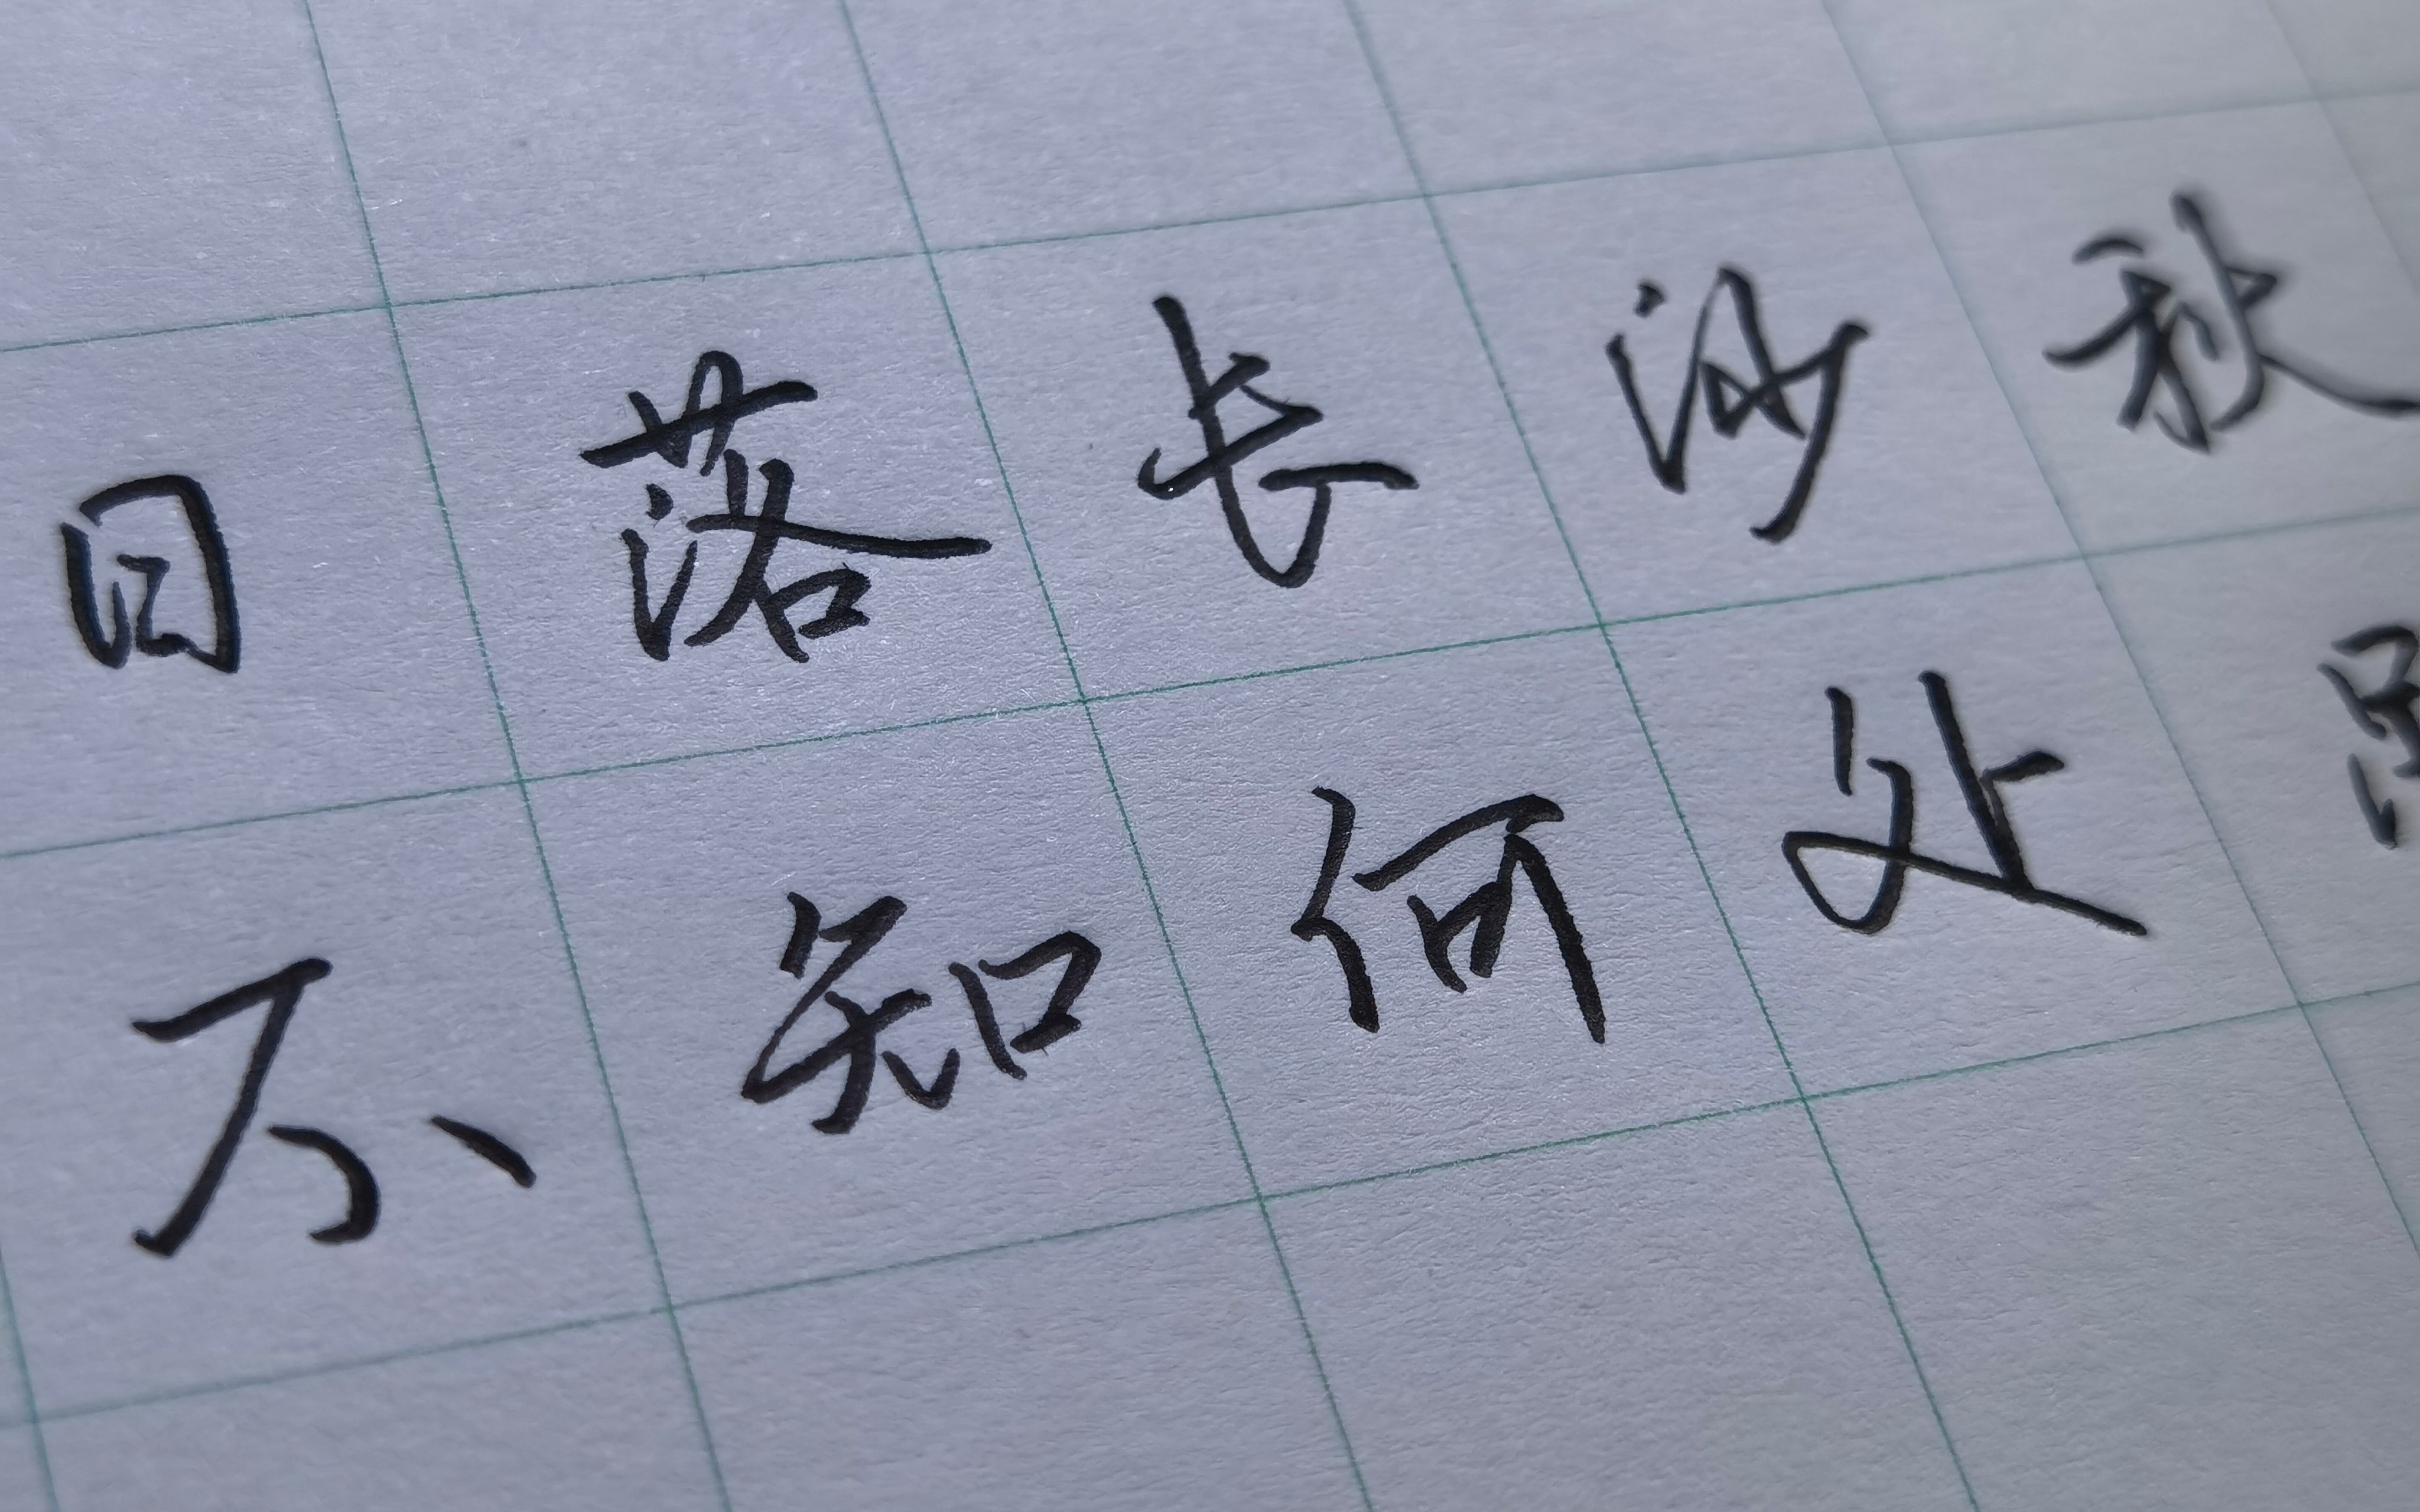 日落长沙秋
不知何处